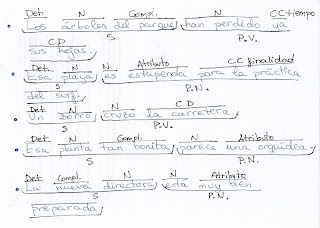 Det. N Compl. N CC tiempo
Los árboles del parque han perdido ya
CD S P.V.
sus hojas.
Det. N N Atributo CC finalidad
• Esa playa es estupenda para la práctica
S P.N.
del surf.
Det. N N CD
• Un zorro cruzo la carretera
S P.V.
Det. N Compl. N Atributo
• Esa planta tan bonita parece una orquídea.
S P.N.
Det. Compl. N N Atributo
• La nueva directora está muy bien
S P.N.
preparada